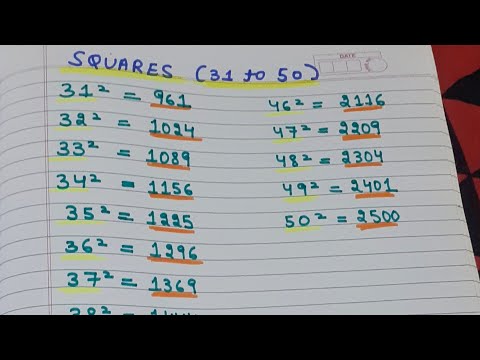 SQUARES (31 to 50)
DATE
31² = 961
32² = 1024
33² = 1089
34² = 1156
35² = 1225
36² = 1296
37² = 1369
46² = 2116
47² = 2209
48² = 2304
49² = 2401
50² = 2500